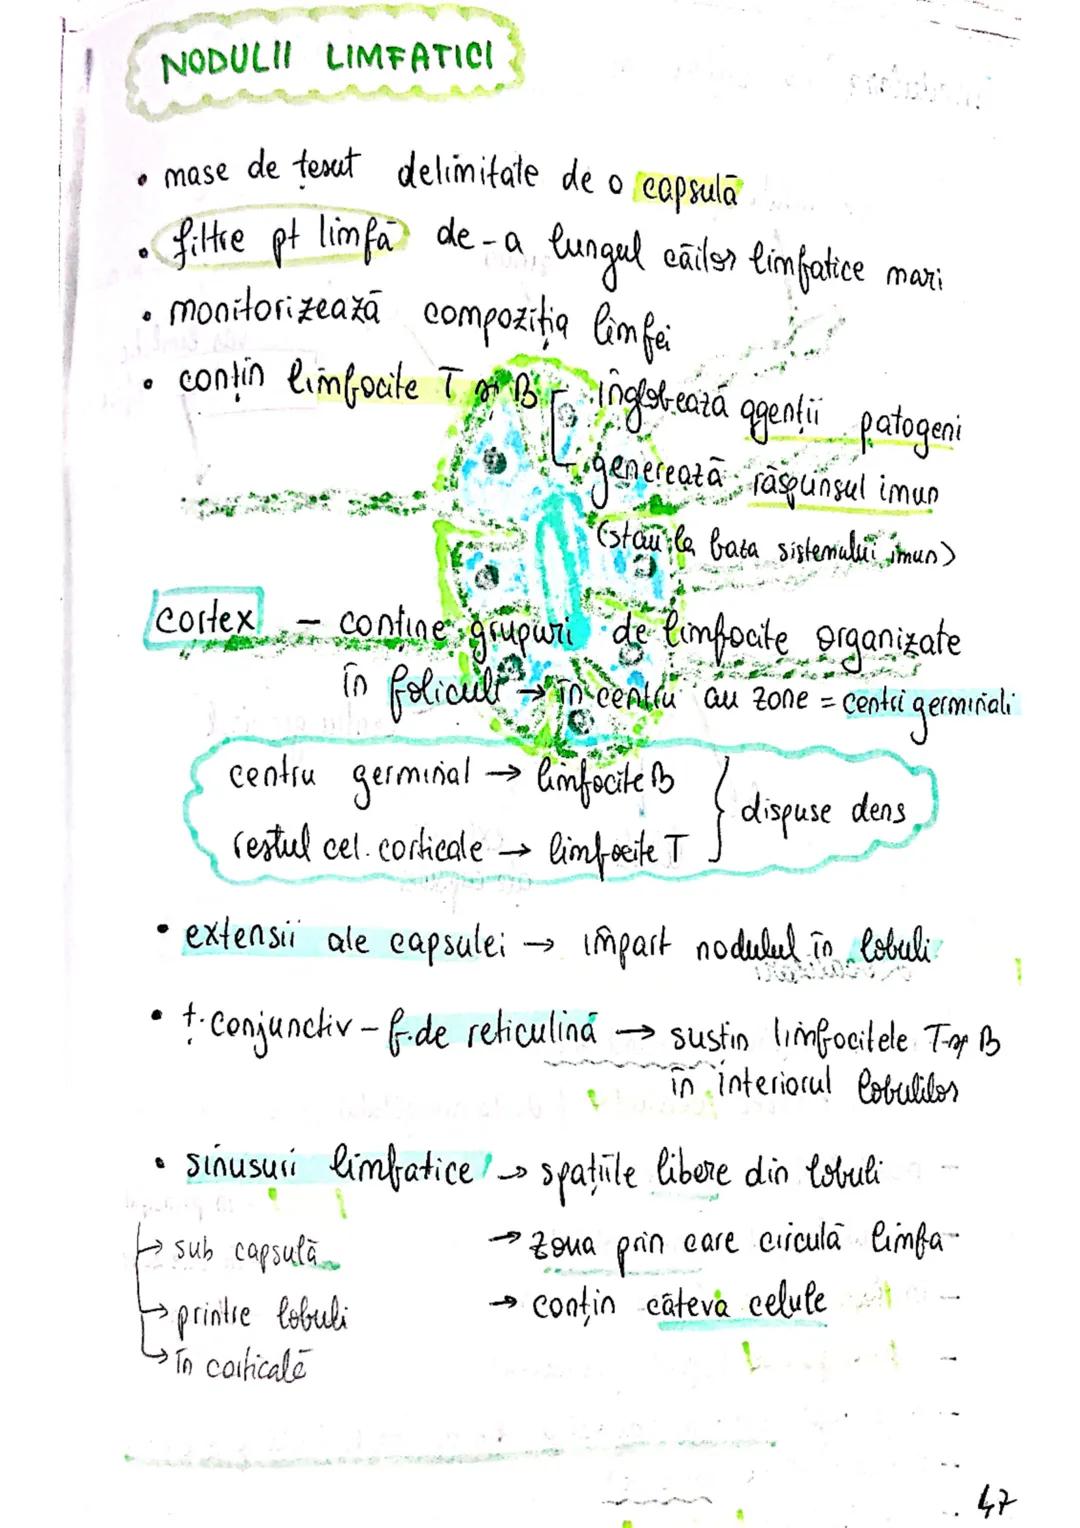 NODULII LIMFATICI
• mase de țesut delimitate de o capsulă
• filtre pt limfă de-a lungul căilor limfatice mari
• monitorizează compoziția limfei
• conțin limfocite T și B înglobează agenții patogeni
generează răspunsul imun
(stau la baza sistemului imun)
cortex – conține grupuri de limfocite organizate
în foliculi → în centru au zone = centri germinali
centru germinal → limfocite B
restul cel. corticale → limfocite T } dispuse dens
• extensii ale capsulei → împart nodulul în lobuli
• ț. conjunctiv – f. de reticulină → susțin limfocitele T și B
în interiorul lobulilor
• sinusuri limfatice → spațiile libere din lobuli
→ sub capsulă → zona prin care circulă limfa
→ printre lobuli → conțin câteva celule
→ în corticală
47